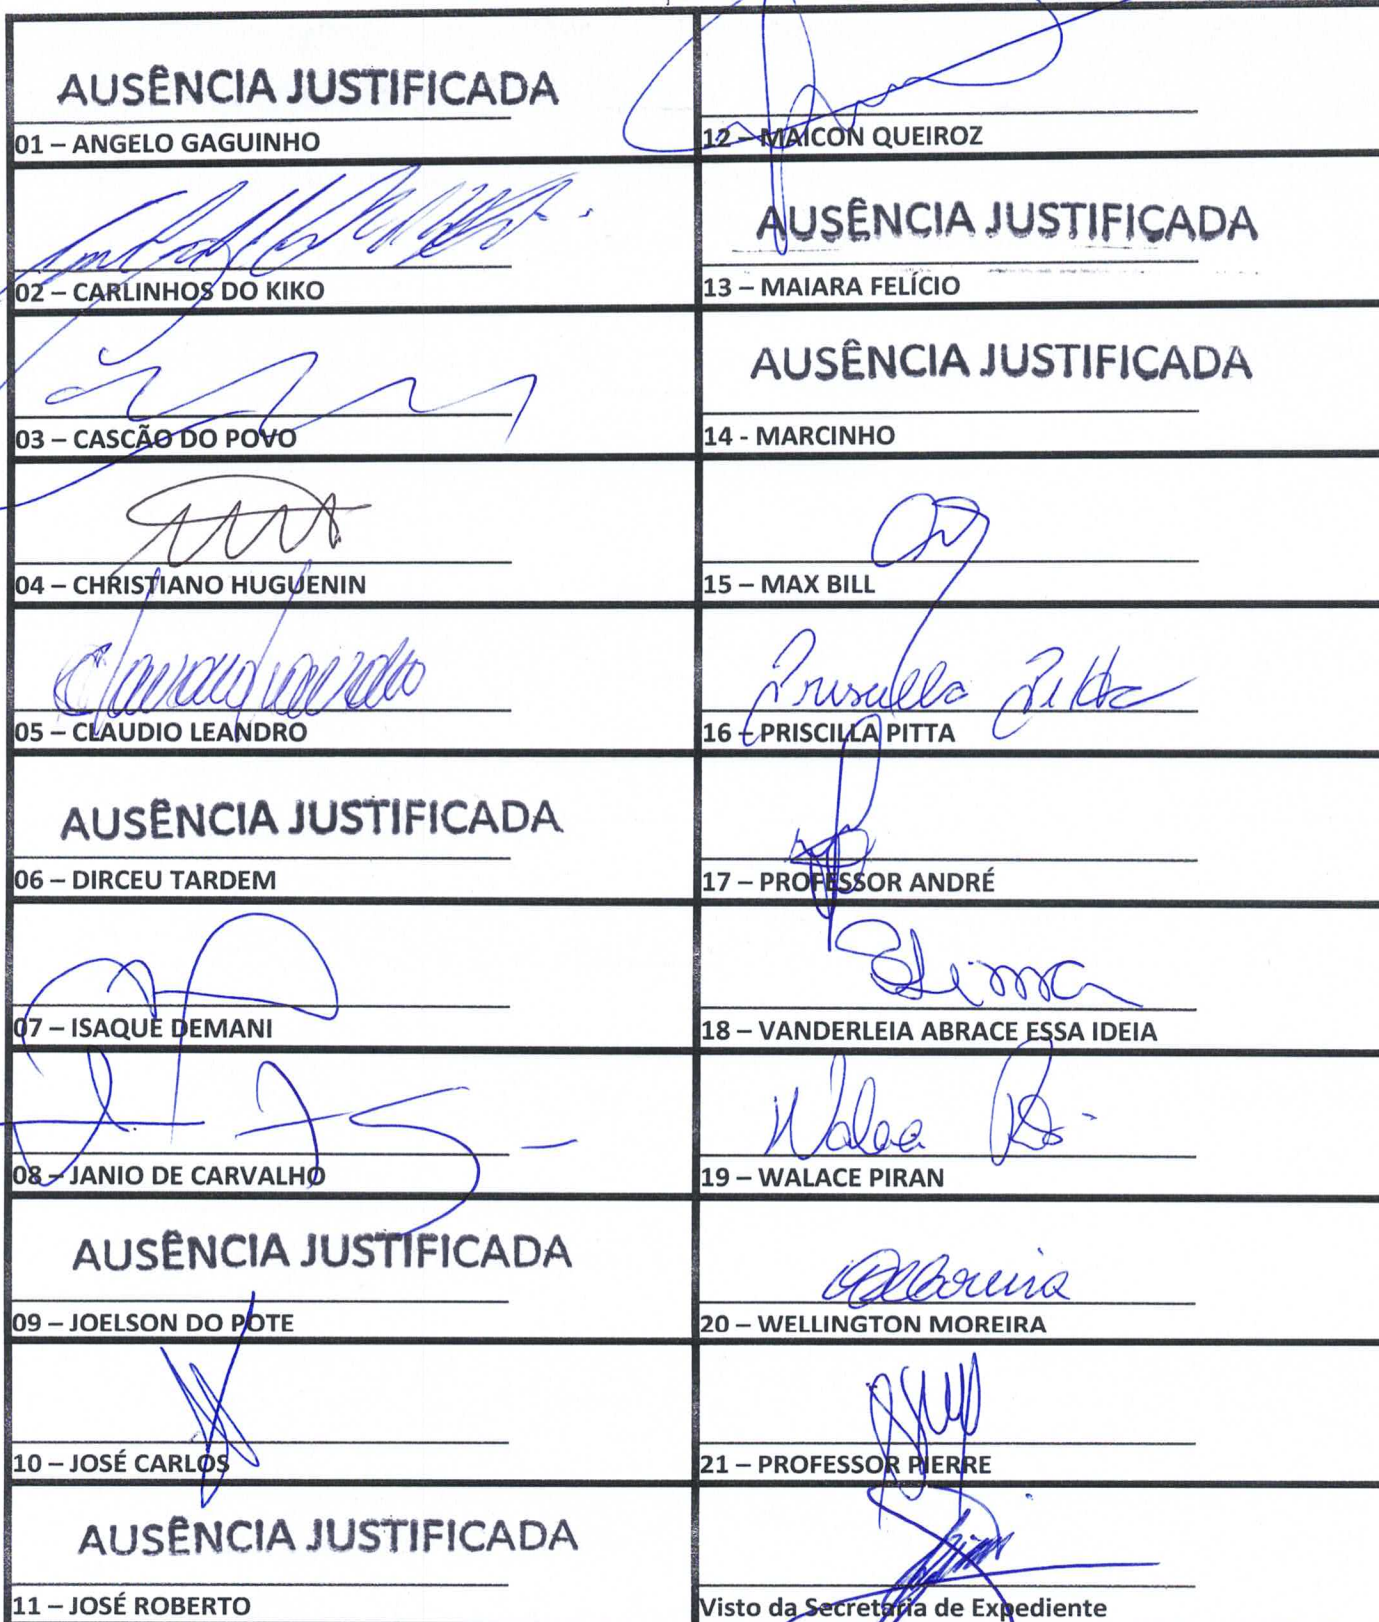 AUSÊNCIA JUSTIFICADA
01 – ANGELO GAGUINHO
02 – CARLINHOS DO KIKO
03 – CASCÃO DO POVO
04 – CHRISTIANO HUGUENIN
05 – CLAUDIO LEANDRO
AUSÊNCIA JUSTIFICADA
06 – DIRCEU TARDEM
07 – ISAQUE DEMANI
08 – JANIO DE CARVALHO
AUSÊNCIA JUSTIFICADA
09 – JOELSON DO POTE
10 – JOSÉ CARLOS
AUSÊNCIA JUSTIFICADA
11 – JOSÉ ROBERTO
12 – MAICON QUEIROZ
AUSÊNCIA JUSTIFICADA
13 – MAIARA FELÍCIO
AUSÊNCIA JUSTIFICADA
14 - MARCINHO
15 – MAX BILL
Priscilla Pitta
16 – PRISCILLA PITTA
17 – PROFESSOR ANDRÉ
18 – VANDERLEIA ABRACE ESSA IDEIA
19 – WALACE PIRAN
20 – WELLINGTON MOREIRA
21 – PROFESSOR PIERRE
Visto da Secretaria de Expediente